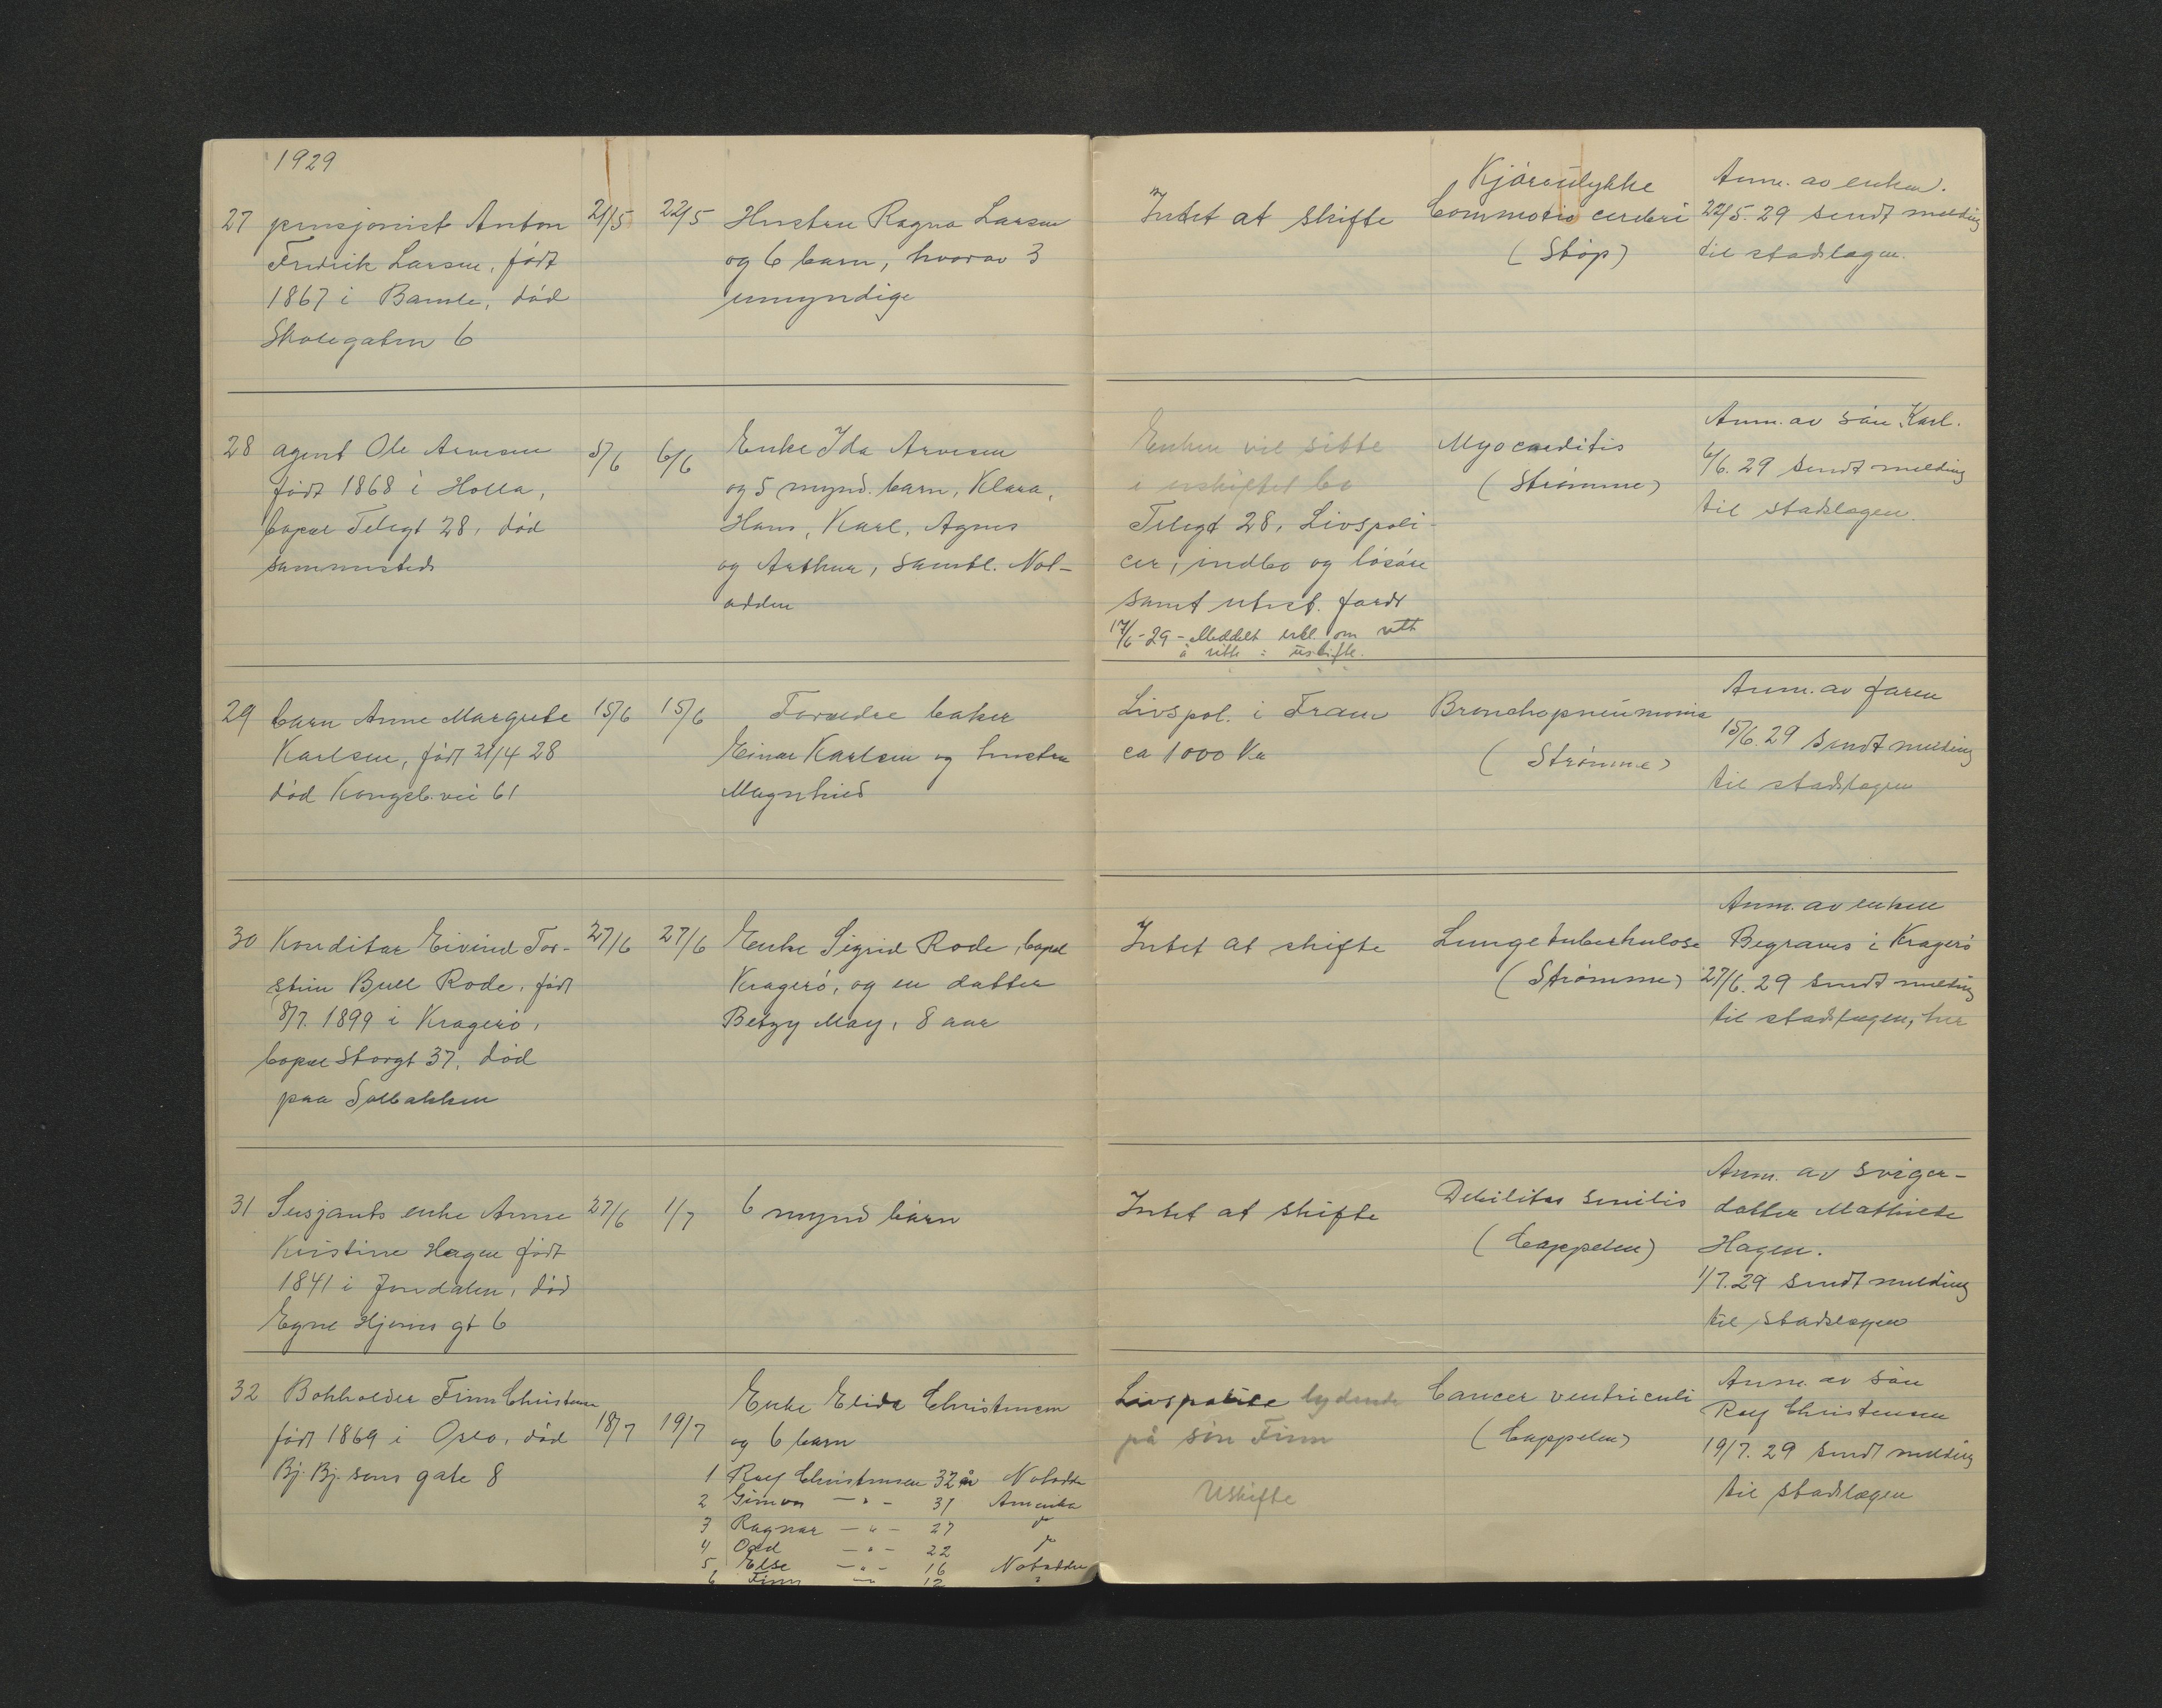 1929
27 pensjonist Anton 21/5 22/5 Hustru Ragna Larsen
Fredrik Larsen, født og 6 barn, hvorav 3
1867 i Bamle, død umyndige
Skolegaten 6
Intet at skifte Kjøreulykke Anm. av enken.
Commotio cerebri 22/5. 29 sendt melding
(Støp) til stadslægen.
28 agent Ole Arvesen 5/6 6/6 Enke Ida Arvesen
født 1868 i Holla, og 5 mynd. barn, Klara,
bopæl Telegt 28, død Hans, Karl, Agnes
sammesteds og Arthur, samtl. Not-
odden
Enken vil sitte Myocarditis Anm. av søn Karl.
i uskiftet bo (Strømme) 6/6. 29 sendt melding
Telegt 28, Livspoli- til stadslægen.
cer, indbo og løsøre
samt utest. fordr
17/6-29 - Meddelt erkl. om rett
å sitte i uskifte.
29 barn Anne Margrete 15/6 15/6 Forældre baker
Karlsen, født 21/4 28 Einar Karlsen og hustru
død Kongsb. vei 61 Magnhild
Livspol. i Fram Bronchopneumonie Anm. av faren
ca 1000 Kr (Strømme) 15/6. 29 sendt melding
til stadslægen
30 Konditor Eivind Tor- 27/6 27/6 Enke Sigrid Rode, bopæl
stein Bull Rode, født Kragerø, og en datter
8/7. 1899 i Kragerø, Betzy May, 8 aar
bopæl Storgt 37, død
paa Solbakken
Intet at skifte Lungetuberkulose Anm. av enken
(Strømme) Begraves i Kragerø
27/6. 29 sendt melding
til stadslægen, her
31 Sersjants enke Anne 27/6 1/7 6 mynd barn
Kristine Hagen født
1841 i Jondalen, død
Egne Hjems gt 6
Intet at skifte Debilitas senilis Anm. av sviger-
(Cappelen) datter Mathilde
Hagen.
1/7. 29 sendt melding
til stadslægen
32 Bokholder Finn Christensen 18/7 19/7 Enke Elida Christensen
født 1869 i Oslo, død og 6 barn
Bj. Bj. sons gate 8
1 Rolf Christensen 32 år Notodden
2 Gunvor — " — 31 Amerika
3 Ragnar — " — 27 do
4 Odd — " — 22 do
5 Else — " — 16 Notodden
6 Finn — " — 12 "
Livspolice lydende Cancer ventriculi Anm. av søn
på søn Finn (Cappelen) Rolf Christensen
Uskifte 19/7. 29 sendt melding
til stadslægen